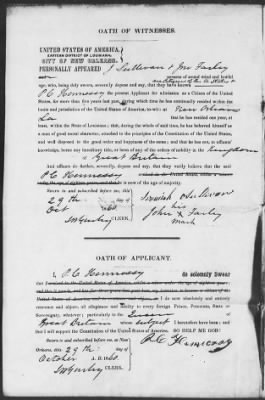 OATH OF WITNESSES.
UNITED STATES OF AMERICA,
EASTERN DISTRICT OF LOUISIANA,
CITY OF NEW ORLEANS.
PERSONALLY APPEARED J Sullivan & Jno Farley
persons of sound mind and lawful
age, who, being duly sworn, severally depose and say, that they have known
P C Hennessy the present Applicant for admission as a Citizen of the United
States, for more than five years last past, during which time he has continually resided within the
limits and jurisdiction of the United States of America, to wit: at New Orleans
La that he has resided one year, at
least, within the State of Louisiana; that, during the whole of said time, he has behaved himself as
a man of good moral character, attached to the principles of the Constitution of the United States,
and well disposed to the good order and happiness of the same; and that he has not, to affiants'
knowledge, borne any hereditary title, or been of any of the orders of nobility in the Kingdom
of Great Britain
And affiants do further, severally, depose and say, that they verily believe that the said
P C Hennessy resided in the United States
and is now of the age of majority.
Sworn to and subscribed before me, this
29th day of
Oct
CLERK.
Jeremiah oSullivan
his
John X Farley
mark
OATH OF APPLICANT.
I P C Hennessy do solemnly Swear
that
I do now absolutely and entirely
renounce and abjure all allegiance and fidelity to every foreign Prince, Potentate, State or
Sovereignty, whatever; particularly to the Queen of
Great Britain whose subject I heretofore have been; and
that I will support the Constitution of the United States. SO HELP ME GOD!
Sworn to and subscribed before me, New
Orleans, this 29th day of
October A. D. 1860
CLERK.
P C Hennessy